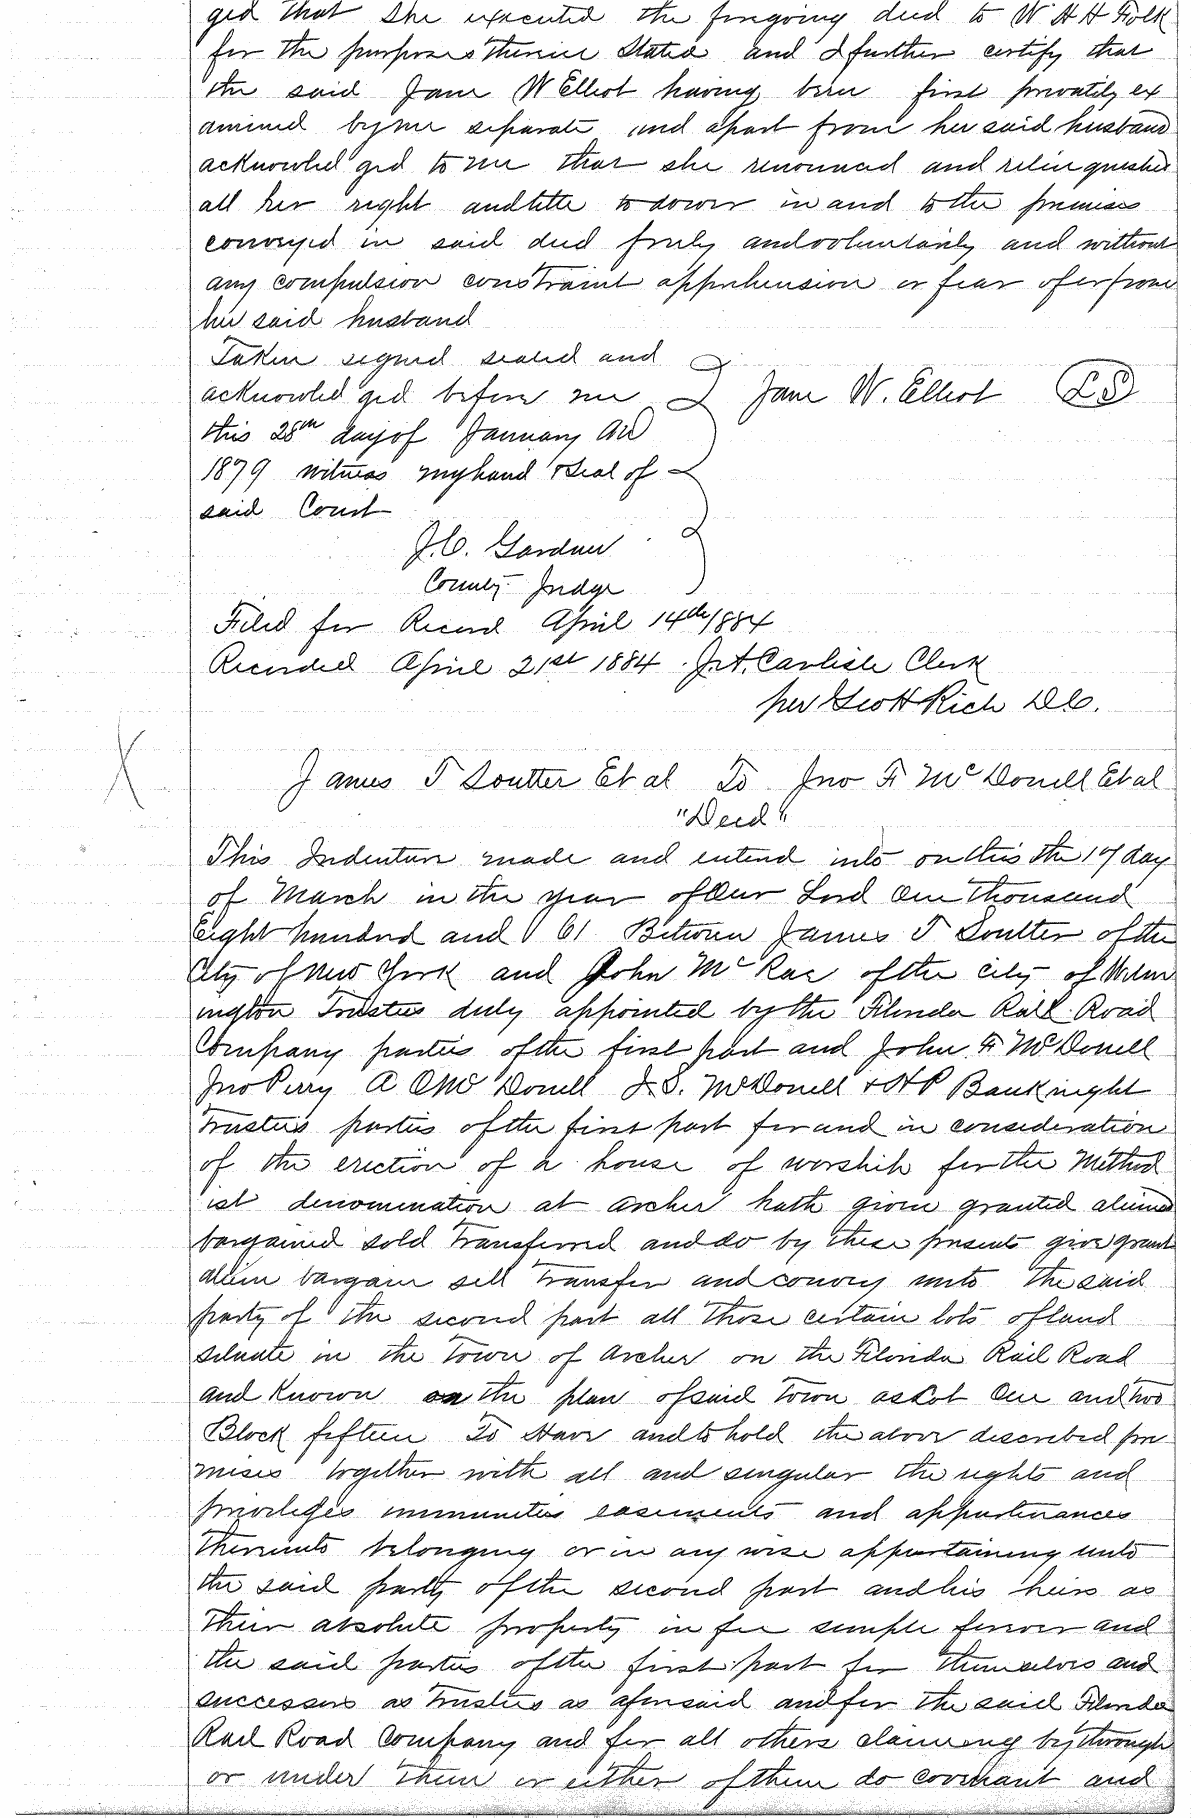 ged that she executed the forgoing deed to W H H Folk
for the purposes therein Stated and I further certify that
the said Jane W Elliot having been first privately ex
amined by me separate and apart from her said husband
acknowled ged to me that she renounced and relinquished
all her right and title to dower in and to the premises
conveyed in said deed freely and voluntarily and without
any compulsion constraint apprehension or fear of or from
her said husband
Taken signed sealed and
acknowled ged before me
Jane W. Elliot LS
this 28th day of January AD
1879 witness my hand & Seal of
said Court
J.C. Gardner
County Judge
Filed for Record April 14th/884
Recorded April 21st 1884 J.A. Carlisle Clerk
per Geo H Rich D.C.
X
James T Soutter Et al To Jno F McDonell Et al
"Deed"
This Indenture made and enterd into on this the 19 day
of March in the year of Our Lord One thousand
Eight hundred and 61 Between James T Soutter of the
City of New York and John McRae of the city of Wilm
ington Trustees duly appointed by the Florida Rail Road
Company parties of the first part and John F McDonell
Jno Perry A C McDonell J.S. McDonell & H P Bauknight
Trustees parties of the first part for and in consideration
of the erection of a house of worship for the Method
ist denomination at Archer hath given granted aliened
bargained sold transferred and do by these presents give grant
alien bargain sell transfer and convey unto the said
party of the second part all those certain lots of land
situate in the Town of Archer on the Florida Rail Road
and known on the plan of said Town as Lot One and two
Block fifteen To Have and to hold the above described pre
mises together with all and singular the rights and
privileges immunities easements and appurtenances
thereunto belonging or in any wise appurtaining unto
the said party of the second part and his heirs as
their absolute property in fee simple forever and
the said parties of the first part for themselves and
successors as trustees as aforesaid and for the said Florida
Rail Road Company and for all others claiming by through
or under them or either of them do covenant and